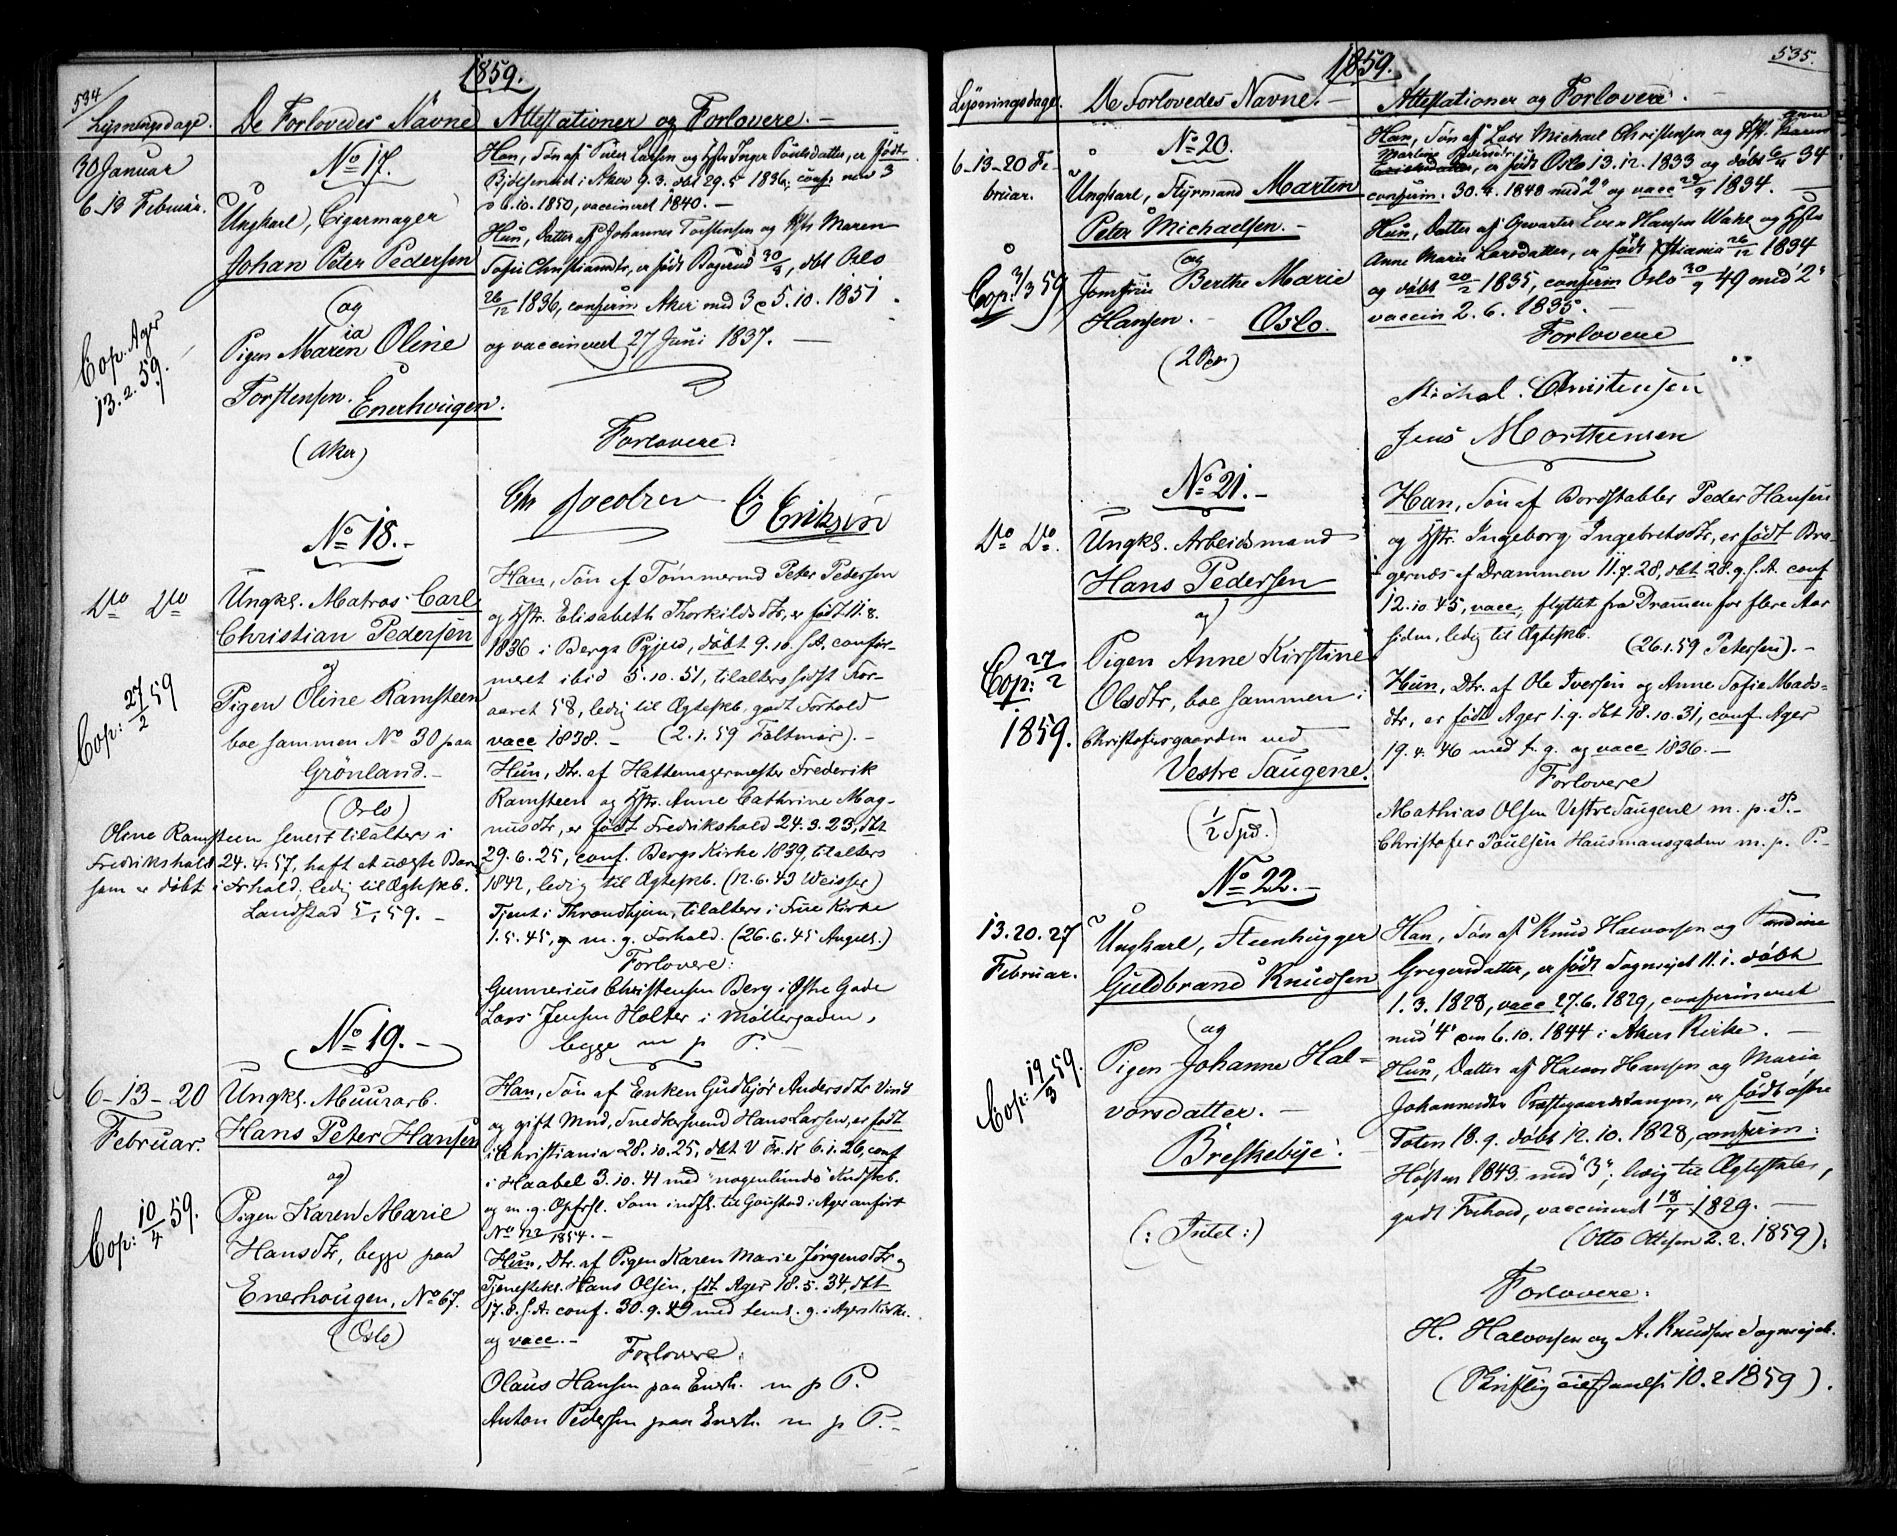 534
1859.
Lysningsdage. De Forlovedes Navne Attestationer og Forlovere.
30 Januar
6-13 Februar.
Cop. Ager
13.2.59.
No 17.
Ungkarl, Cigarmager
Johan Peter Pedersen
og
Pigen Maren Oline
ia
Torstensen. Enerhougen.
(Aker)
Han, Søn af Peder Larsen og Hstr Inger Poulsdatter, er født
i Aker 9.3. dbt 29.5 1836, conf. med 3
6.10.1850, vaccineret 1840.
Hun, Datter af Johannes Torstensen og Hstr Maren
Sofie Christiansdtr, er født Bogerud 30/3, dbt Oslo
26/12 1836, confirm Aker med 3 5.10.1851
og vaccineret 27 Juni 1837.
Forlovere:
Chr Jacobsen O Eriksen
No 18.
Do Do
Cop: 27/2 59
Ungkl. Matros Carl
Christian Pedersen
og
Pigen Oline Ramsteen
boe sammen No 30 paa
Grönland.
(Oslo)
Oline Ramsteen senest tilalters i
Fredrikshald 24.4.57, haft et uægte Barn
som er døbt i Frhald, ledig til Ægteskb.
Landstad 5/1 59.
Han, Søn af Tømmermd Peter Pedersen
og Hstr. Elisabeth Thorkildsdtr, er født 11.8.
1836 i Bergs Pgjeld, døbt 9.10. s.A. confir-
meret ibid 5.10.51, tilalters sidst For-
aaret 58, ledig til Ægteskb, godt Forhold
vacc 1838. (2.1.59 Faltmar).
Hun, Dtr. af Hattemagermester Frederik
Ramsteen og Hstr. Anne Cathrine Mag-
nusdtr, er født Fredrikshald 24.3.23, dbt
29.6.25, conf. Bergs Kirke 1839, tilalters
1842, ledig til Ægteskb. (12.6.43 Weisser)
Tjent i Throndhjem, tilalters i Frue Kirke
1.5.45, og m. g. Forhold. (26.6.45 Angell.)
Forlovere:
Gunnerius Christensen Berg i Østre Gade
Lars Jensen Holter i Møllergaden,
begge m p P.
No 19.
6-13-20
Februar.
Cop: 10/4 59.
Ungkl. Muurarb.
Hans Peter Hansen
og
Pigen Karen Marie
Hansdtr, begge paa
Enerhougen, No 67.
(Oslo)
Han, Søn af Enken Gudbjør Andersdtr Vind
og gift Mnd, Snedkersvend Hans Larsen, er født
i Christiania 28.10.25, dbt V Fr. K 6.1.26, conf
i Haabel 3.10.41 med "nogenlunde" Kndskb.
og m. g. Opførsl. Som indfl. til Gaustad i Ager anført
No 1854.
Hun, Dtr. af Pigen Karen Marie Jørgensdtr og
Tjenestekl. Hans Olsen, fdt Ager 18.5.34, dbt
17.8. s.A. conf. 30.9.49 med teml. g. i Agers Kirke.
og vacc.
Forlovere:
Olaus Hansen paa Enerh. m p P.
Anton Pedersen paa Enerh. m p P.
535.
1859.
Lysningsdage. De Forlovedes Navne. Attestationer og Forlovere.
6-13-20 Fe-
bruar.
Cop: 2/3 59
No 20.
Ungkarl, Styrmand Martin
Peter Michaelsen.
og
Jomfru Berthe Marie
Hansen. Oslo.
Han, Søn af Lars Michael Christensen og Hst. Karen
født Oslo 13.12.1833 og døbt 6/4 34
confirm. 30.4.1848 med "2" og vacc 1834.
Hun, Datter af Opvarter Even Hansen Wahl og Hstr
Anne Marie Larsdatter, er født Xstiania 26/12 1834
og døbt 20/2 1835, confirm Oslo 30/9 49 med "2"
vaccin 2.6.1835.
Forlovere
Michal. Christensen
Jens Morthensen
No 21.
Do Do.
Cop: 27/2
1859.
Ungkl. Arbeidsmand
Hans Pedersen
og
Pigen Anne Kirstine
Olsdtr, boe sammen i
Christofersgaarden ved
Vestre Saugene.
(1/2 Spd.)
Han, Søn af Bordstabler Peder Hansen
og Hstr. Ingeborg Ingebretsdtr, er født Bra-
gernæs af Drammen 11.7.28, dbt 28.9. s.A. conf
12.10.45, vacc, flyttet fra Drammen for flere Aar
siden, ledig til Ægteskb. (26.1.59 Petersen).
Hun, Dtr. af Ole Iversen og Anne Sofie Mads-
dtr, er født Ager 1.9. dbt 18.10.31, conf Ager
19.4.46 med t. g. og vacc 1836.
Forlovere
Mathias Olsen Vestre Saugene m. p. P.
Christofer Poulsen Hausmansgaden m. p. P.
No 22.
13.20.27
Februar.
Cop: 19/3 59.
Ungkarl, Steenhugger
Guldbrand Knudsen
og
Pigen Johanne Hal-
vorsdatter.
Briskebye.
(: Intet :)
Han, Søn af Knud Halvorsen og
Gregersdatter, er født Sognsejet 11.1. døbt
1.3.1828, vacc 27.6.1829, confirmeret
med "4" den 6.10.1844 i Akers Kirke.
Hun, Datter af Halvor Hansen og Maria
Johannesdtr er født Østre
Toten 18.9. døbt 12.10.1828, confirm:
Høsten 1843 med "3", ledig til Ægteskab,
godt Forhold, vaccineret 18/7 1829.
(Otto Ottesen 2.2.1859).
Forlovere:
H. Halvorsen og A. Knudsen Sognsejet.
(Skriftlig 10.2.1859).